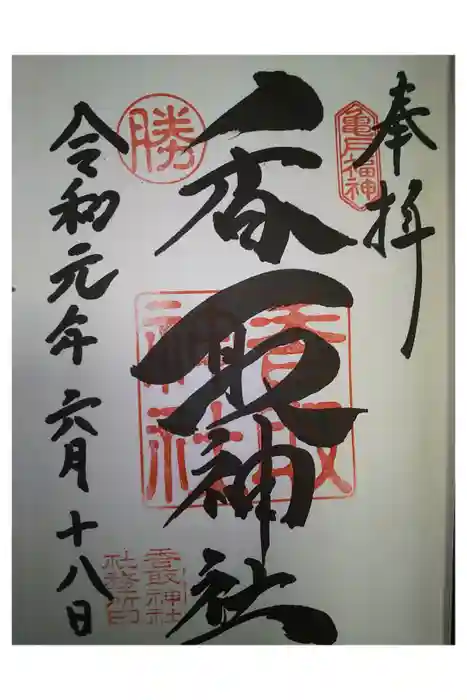 奉拝
亀戸福神
香取神社
香取
神社
勝
香取神社
社務所印
令和元年六月十八日